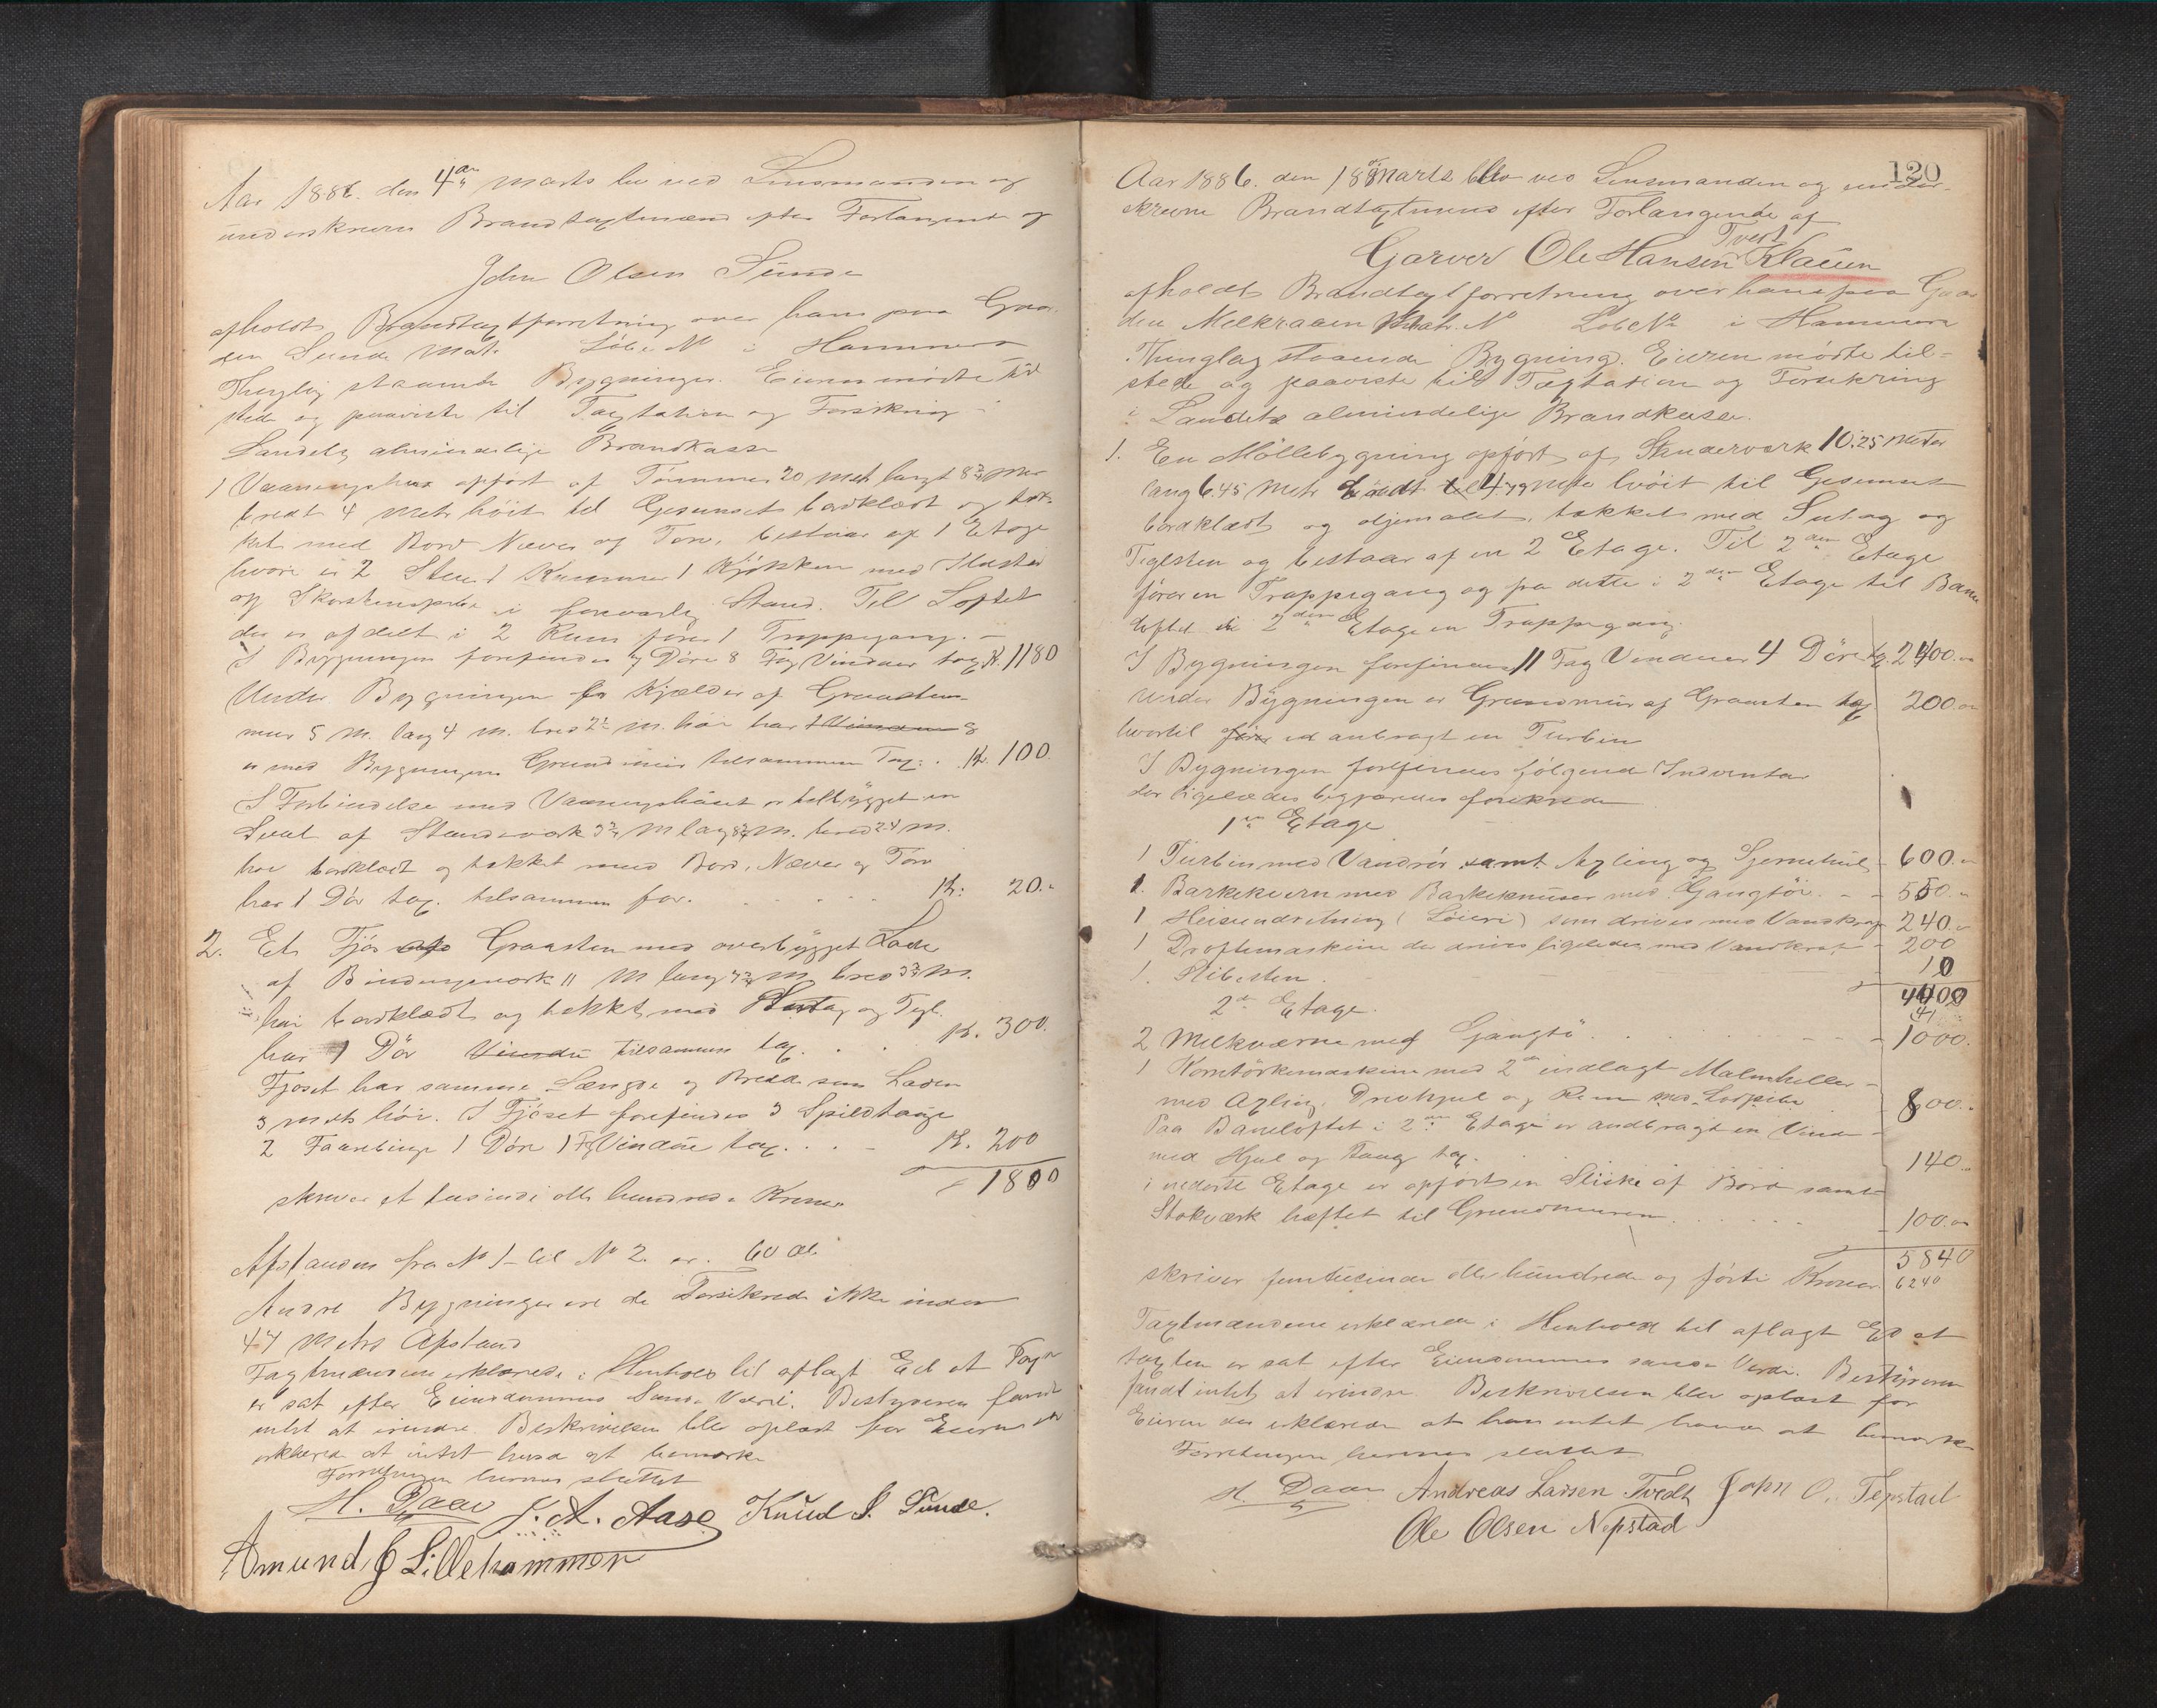 Aar 1886. den 4de Marts blev ved Lensmanden og
underskrevne Brandtagtmænd efter Forlangende af
John Olsen Sünde
afholdt Brandtagtforretning over hans paa Gaar-
den Sunde Matr. Löbe No i Hammers
Thinglag staaende Bygninger. Eieren mödte til
stede og paaviste til Tagtation og Forsikring i
Landets almindelige Brandkasse
1 Vaaningshus opfört af Tömmer 20 Metr langt 8 Metr
bredt 4 Metr höit til Gesimset bordklædt og tæk-
ket med Bord Næver og Torv, bestaar af 1 Etage
hvori er 2 Stuer 1 Kammer 1 Kjökken med Ildsted
og Skorstenspibe i forsvarlig Stand. Til Loftet
der er afdelt i 2 Rum förer 1 Trappegang. -
I Bygningen forefindes 7 Döre 8 Fag Vinduer tax. Kr. 1180
Under Bygningen er Kjælder af Graasten-
mur 5 M. lang 4 M. bred M. höi har 1
er med Bygningens Grundmur tilsammen Tax. . Kr. 100
I Forbindelse med Vaaningshuset er tilbygget en
Sval af Standerværk M lang M. bred M.
höi bordklædt og tækket med Bord, Næver og Torv
har 1 Dör tax. tilsammen for. . . . . Kr: 20.
2. Et Fjös af Graasten med overbygget Lade
af Bindingsværk 11 M lang M bred M.
höi bordklædt og tækket med Sutag og Tegl.
har 1 Dör Vindu tilsammen tax. . . Kr. 300.
Fjöset har samme Længde og Bredde som Laden
3 Metr höi. I Fjöset forefindes 3 Spildtauge
2 Faarebinge 1 Döre 1 Fag Vindue tax. . . - Kr. 200
1800
skriver et tusinde otte hundrede Kroner
Afstanden fra No 1 til No 2. er. 60 al.
Andre Bygninger ere de Forsikrede ikke inden
47 Metrs Afstand
Tagtmændene erklærede i Henhold til aflagt Ed at Taxten
er sat efter Eiendommens Sande Værdi. Bestyreren fandt
intet at erindre. Beskrivelsen blev oplæst for Eieren der
erklærede at intet havde at bemærke
Forretningen hermed sluttet
H. Daae J. A. Aase Knud J. Sunde.
Amund J Lillehammer
120
Aar 1886. den 18de Marts blev ved Lensmanden og under-
skrevne Brandtagtmænd efter Forlangende af
Tvedt
Garver Ole Hansen Klauen
afholdt Brandtagtforretning over hans paa Gaar
den Melkraaen Matr. No Löbe No i Hammers
Thinglag staaende Bygning. Eieren mödte til-
stede og paaviste till Tagtation og Forsikring
i Landets almindelige Brandkasse.
1. En Möllebygning opfört af Standerværk 10.25 Meter
lang 6.45 Metr bredt 4.79 Metr höit til Gesimset
bordklædt og oljemalet, tækket med Sutag og
Teglsten og bestaar af en 2 Etage. Til 2den Etage
förer en Trappegang og fra dette i 2den Etage til Bane
loftet i 2den Etage en Trappegang.
I Bygningen forefindes 11 Fag Vinduer 4 Döre tax. 2400.
under Bygningen er Grundmur af Graasten tax 200.
hvortil er anbragt en Turbin
I Bygningen forefindes fölgende Indventar
der ligeledes begjæredes forsikrede
1ste Etage
1 Turbin med Vandrör samt Axling og Stjernehul - 600.
1. Barkekvern med Barkeknuser med Gangtöi. - - 550.
1 Heiseindretning (Löieri) som drives med Vandkraft 240.
1 Dröftemaskine der drives ligeledes med Vandkraft - 200
1. Slibesten . 10
4400
2den Etage.
2 Melkværne med Gangtö . . . . - 1000.
1 Korntörkemaskine med 2de indlagt Malmheller -
med Axling. Drivhjul og Rem med Loopibe - 800.
Paa Baneloftet i 2den Etage er andbragt en Vinde -
med Hjul og Taug tax. . . . 140.
i nederste Etage er opfört en Sliske af Bord samt
Stokværk hæftet til Grundmuren. . . . . . - 100.
5840
skriver femtusinde otte hundrede og förti Kroner. 6240
Taxtmændene erklærede i Henhold til aflagt Ed at
taxten er sat efter Eiendommens sande Værdi. Bestyreren
fandt intet at erindre. Beskrivelsen blev oplæst for
Eieren der erklærede at han intet havde at bemærke
Forretningen hermed sluttet
H. Daae Andreas Larsen Tvedt John O. Nepstad
Ole Olsen Nepstad